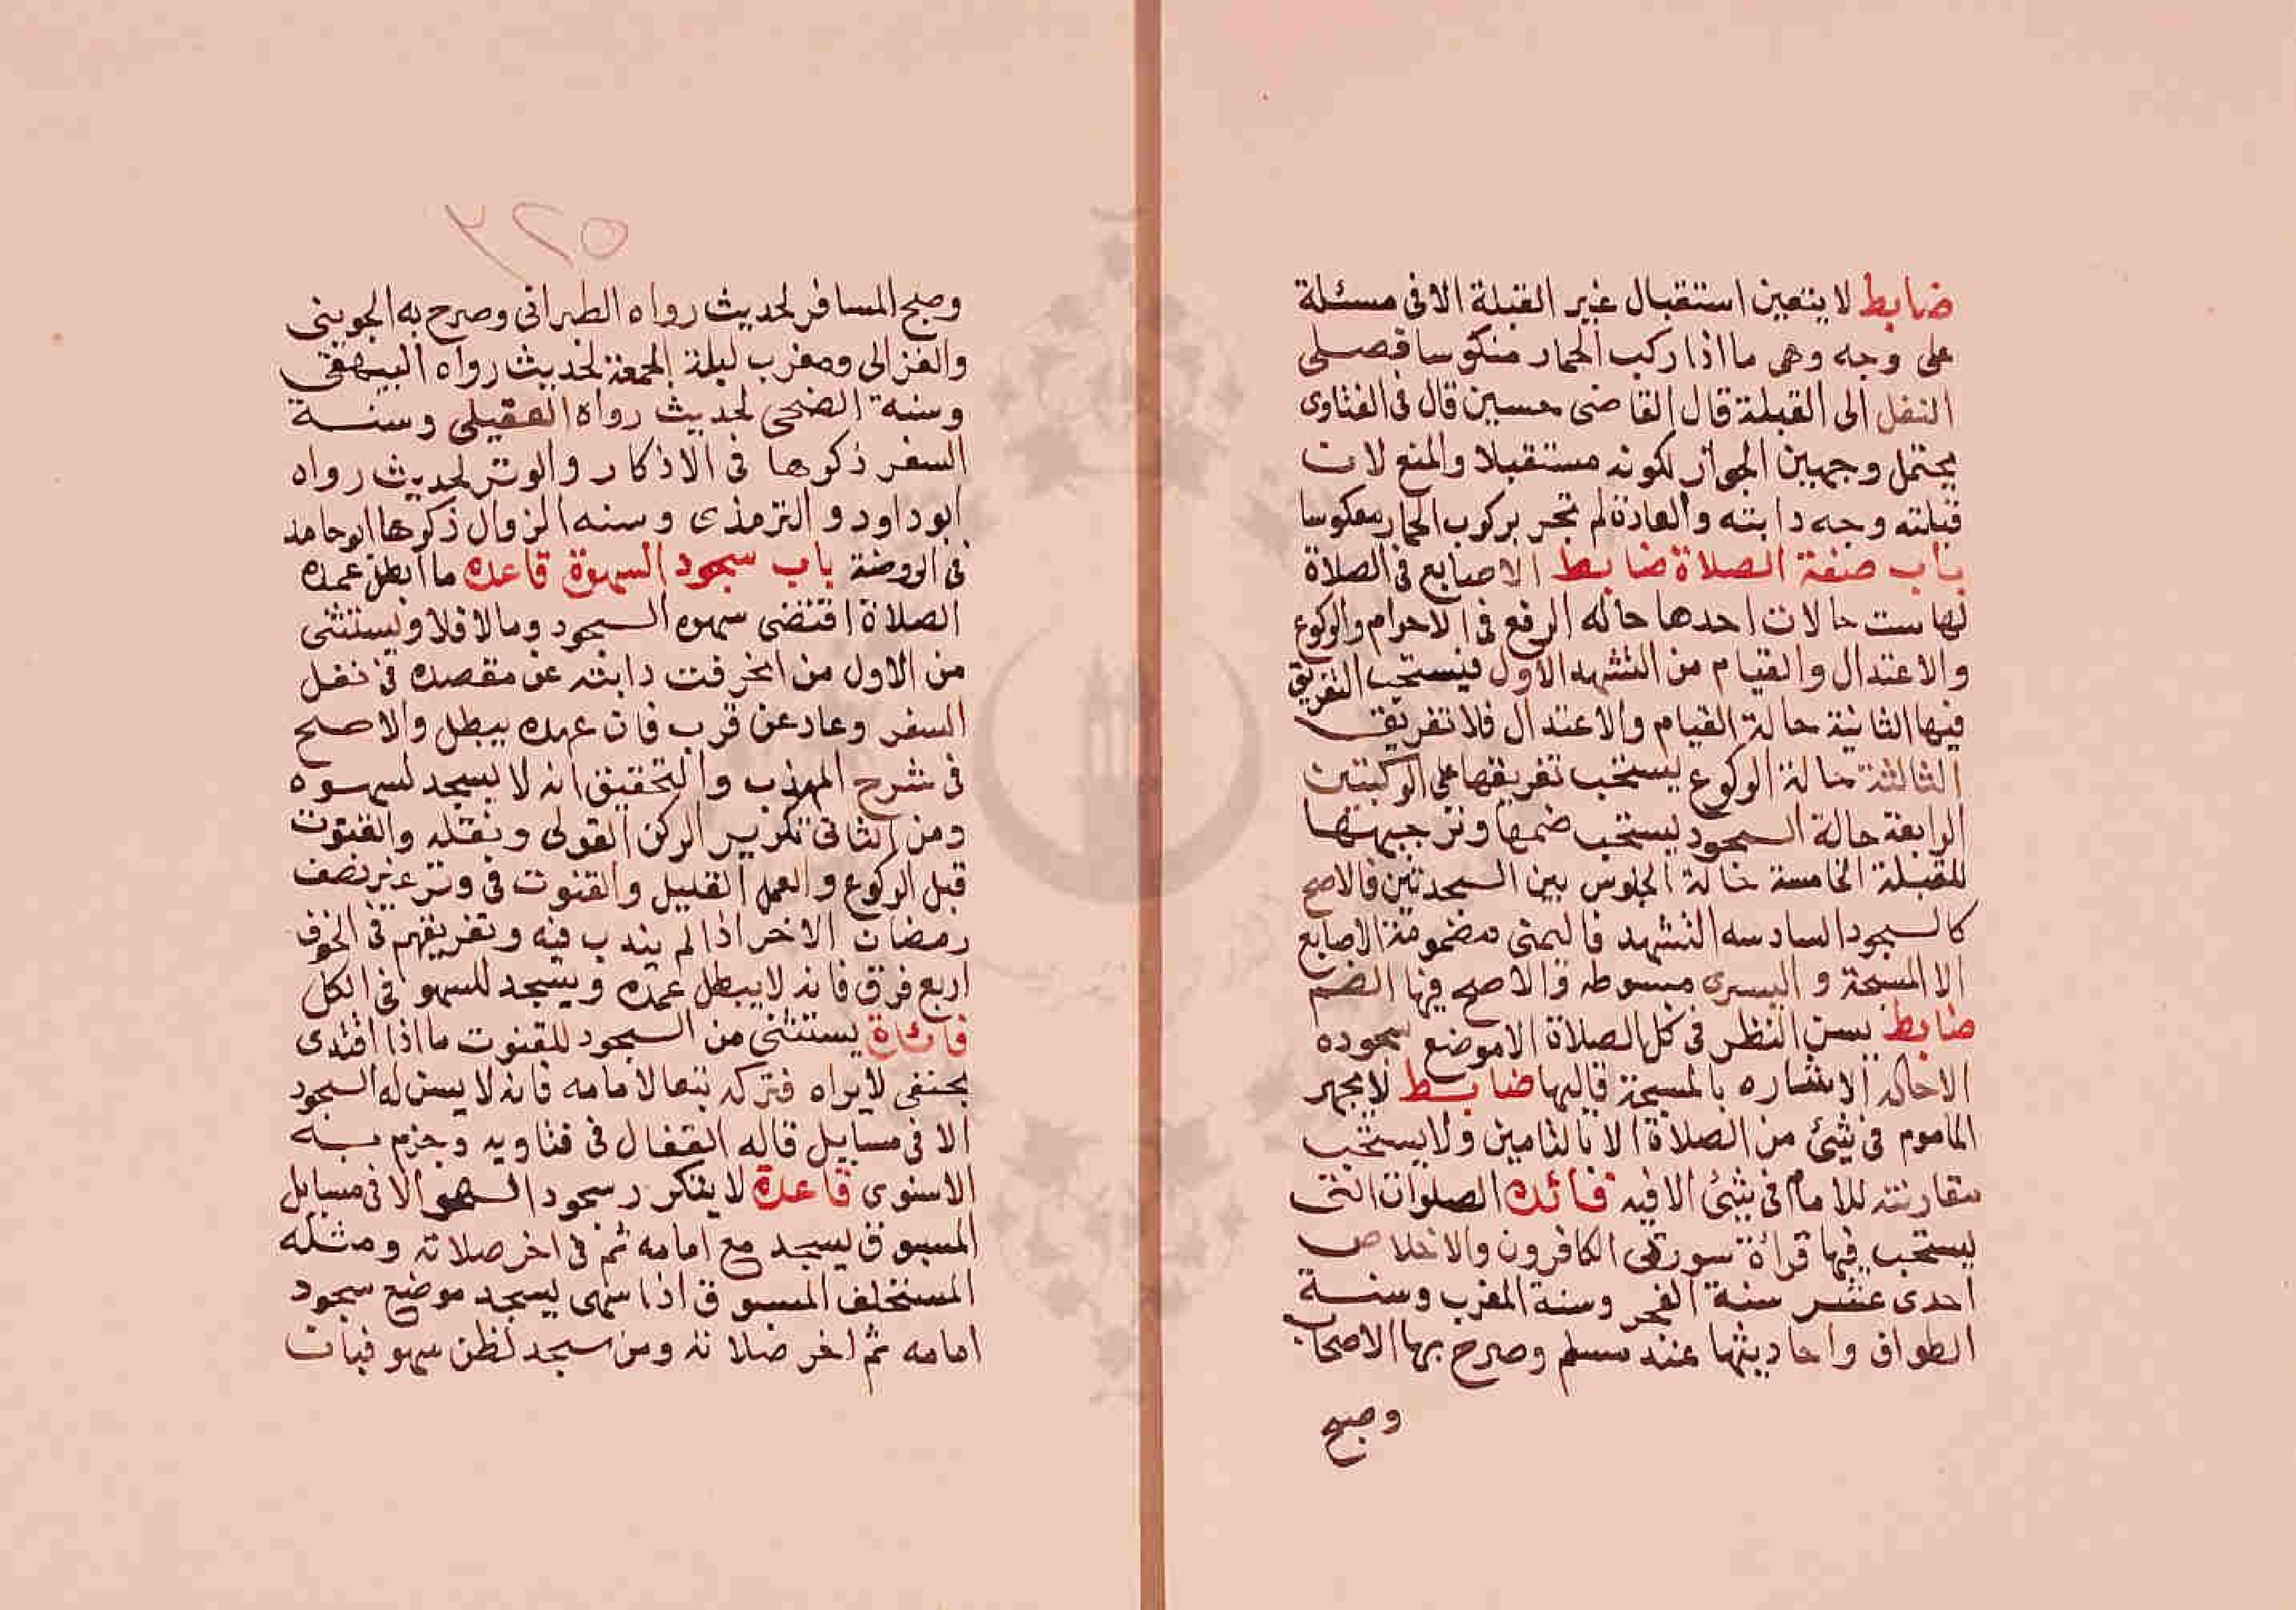 ضابط لا يتعين استقبال غير القبلة الا فى مسئلة
على وجه وهى ما اذا ركب الحمار منكوسا فصلى
النفل الى القبلة قال القاضى حسين قال فى الفتاوى
يحتمل وجهين الجواز لكونه مستقبلا والمنع لان
قبلته وجه دابته والعادة لم تجر بركوب الحمار معكوسا
باب صفة الصلاة ضابط الاصابع فى الصلاة
لها ست حالات احدها حاله الرفع فى الاحرام والركوع
والاعتدال والقيام من التشهد الاول فيستحب التفريق
فيها الثانية حالة القيام والاعتدال فلا تفريق
الثالثة حالة الركوع يستحب تفريقها على الركبتين
الرابعة حالة السجود يستحب ضمها وترجيهها
للقبلة الخامسة حالة الجلوس بين السجدتين فالاصح
كالسجود السادسه التشهد فاليمنى مضمومة الاصابع
الا المسبحة واليسرى مبسوطه والاصح فيها الضم
ضابط يسن النظر فى كل الصلاة الا موضع سجوده
الاحاله الا بشاره بالمسبحة قالبها ضابط لا يجهر
الماموم فى شئ من الصلاة الا بالتامين ولا يستحب
مقارنته للامام فى شئ الا فيه فائده الصلوات التى
يستحب فيها قراة سورتى الكافرون والاخلاص
احدى عشر سنة الفجر وسنة المغرب وسنة
الطواف واحاديثها عند مسلم وصرح بها الاصحاب
وصبح
٣٢٥
وصبح المسافر لحديث رواه الطبرانى وصرح به الجوينى
والغزالى ومغرب ليلة الجمعة لحديث رواه البيهقى
وسنة الضحى لحديث رواه العقيلى وسنة
السفر ذكرها فى الاذكار والوتر لحديث رواه
ابو داود والترمذى وسنه الزوال ذكرها ابو حامد
فى الروضة باب سجود السهوة قاعده ما ابطل عمده
الصلاة اقتضى سهوه السجود وما لا فلا ويستثنى
من الاول من انحرفت دابته عن مقصده فى نفل
السفر وعاد عن قرب فان عهده يبطل والاصح
فى شرح المهذب والتحقيق انه لا يسجد لسهوه
ومن الثانى تكرير الركن القولى ونقله والقنوت
قبل الركوع والعمل القليل والقنوت فى وتر غير نصف
رمضان الاخر اذا لم يندب فيه وتفريقهم فى الخوف
اربع فرق فانه لا يبطل عمده ويسجد للسهو فى الكل
فائدة يستثنى من السجود للقنوت ما اذا اقتدى
بحنفى لا يراه فتركه تبعا لامامه فانه لا يسن له السجود
الا فى مسايل قاله القفال فى فتاويه وجزم به
الاسنوى قاعدة لا يتكرر سجود السهو الا فى مسايل
المسبوق يسجد مع امامه ثم فى اخر صلاته ومثله
المستخلف المسبوق اذا سهى يسجد موضع سجود
امامه ثم اخر صلاته ومن سجد لظن سهو فبان